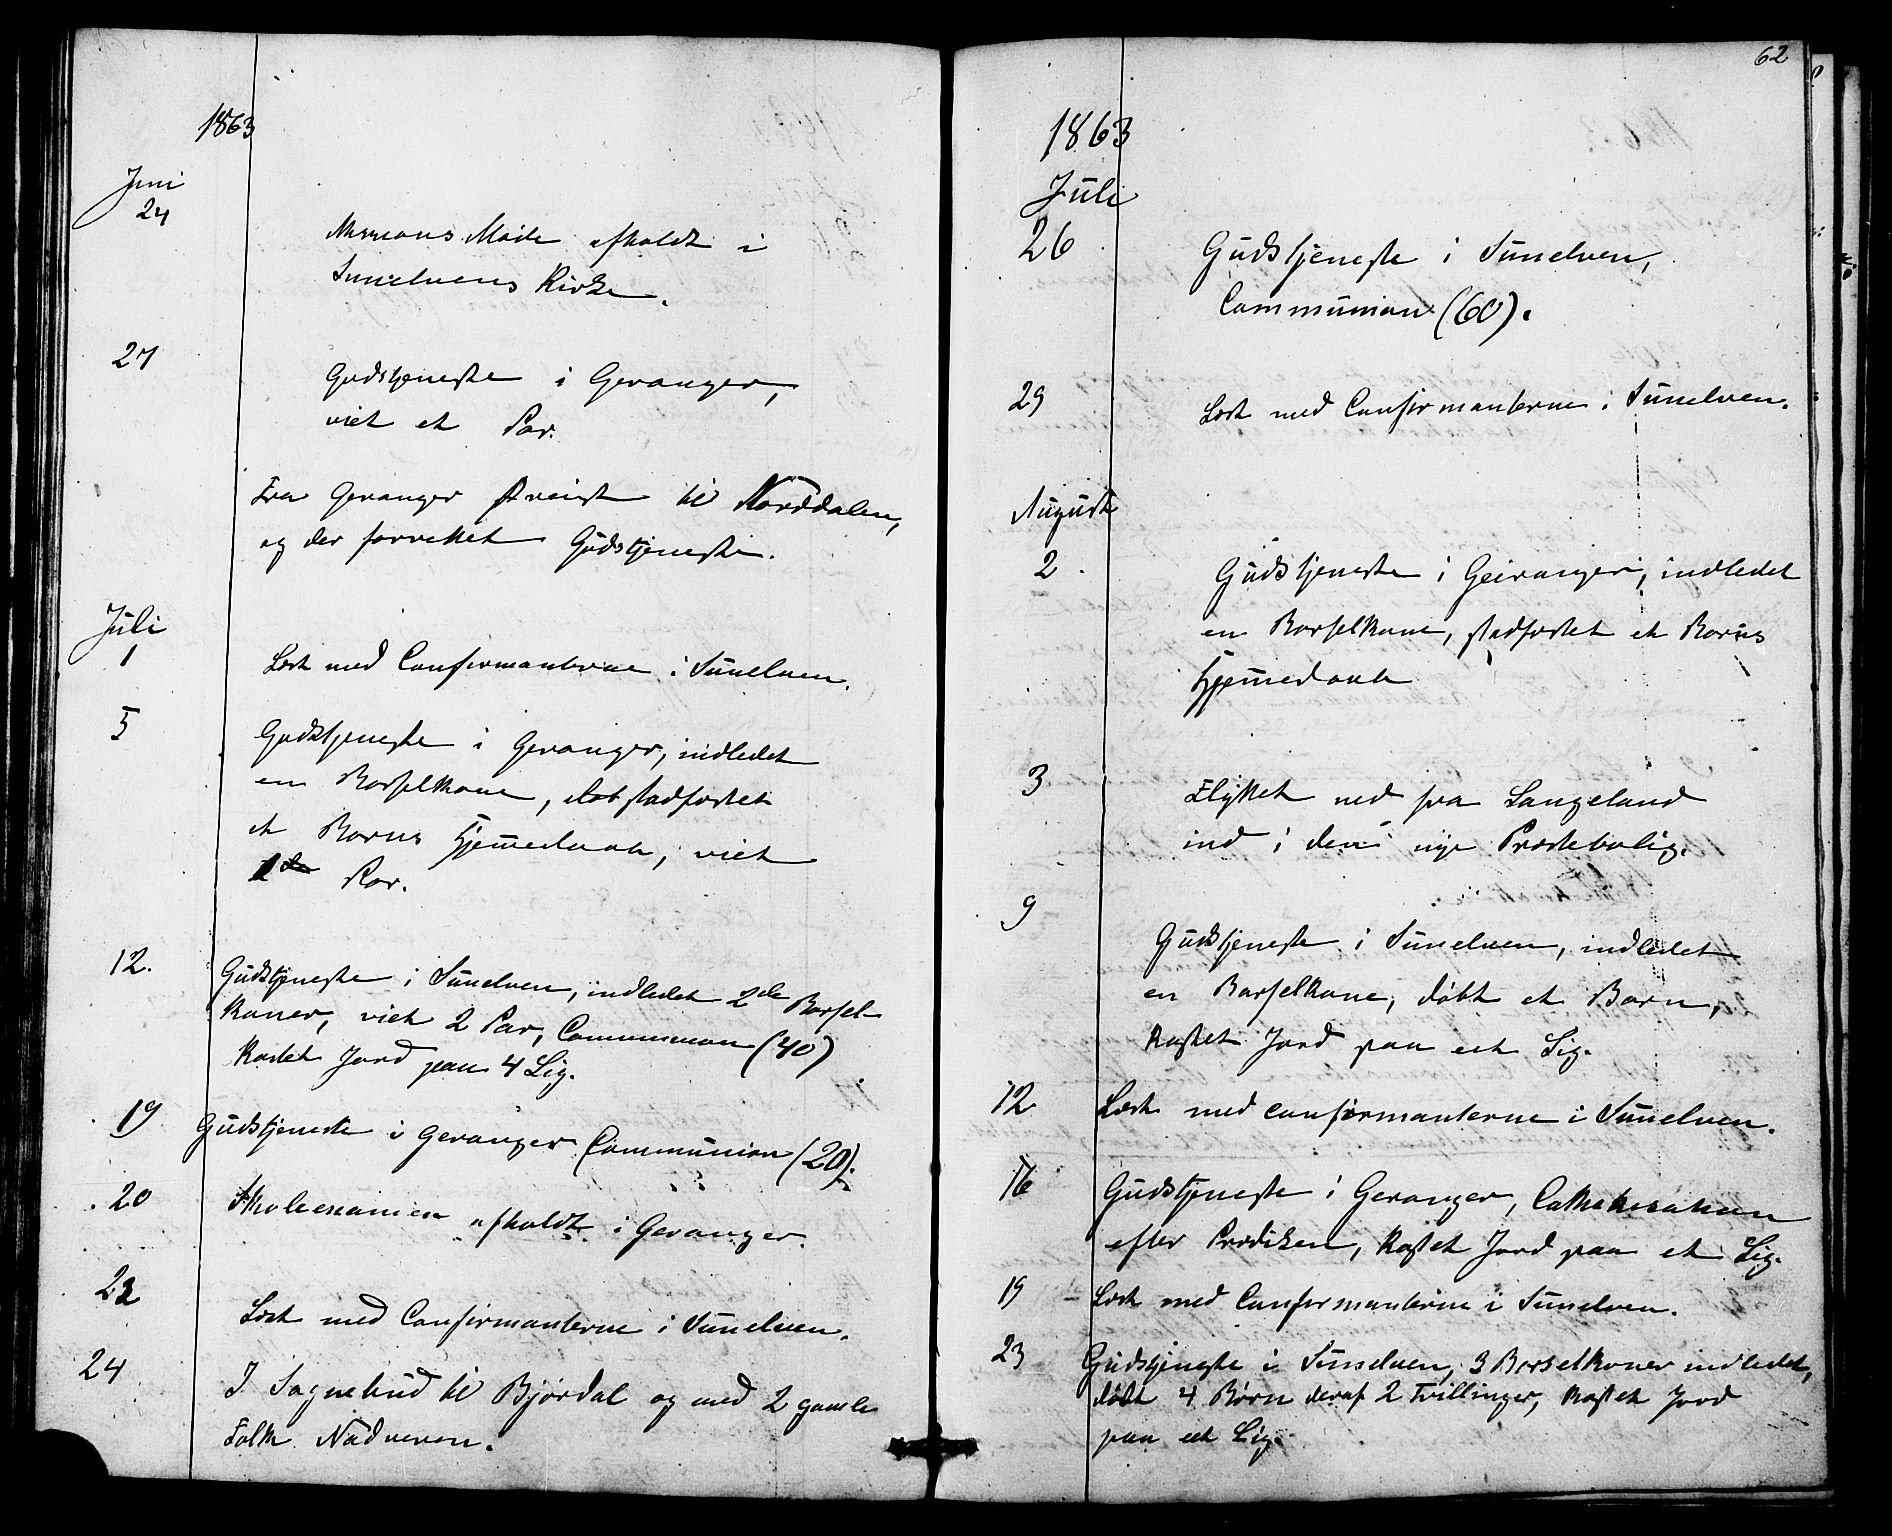 1863
Juni
24
Missions Møde afholdt i
Sunelvens Kirke.
27
Gudstjeneste i Geranger,
viet et Par.
Fra Geranger reist til Norddalen,
og der forrettet Gudstjeneste.
Juli
1
Læst med Confirmanterne i Sunelven.
5
Gudstjeneste i Geranger, indledet
en Barselkone, stadfæstet
et Barns Hjemmedaab, viet
Par.
12.
Gudstjeneste i Sunelven, indledet 2de Barsel-
koner, viet 2 Par, Communion (40)
Kastet Jord paa 4 Lig.
19
Gudstjeneste i Geranger Communion (20).
20
Skoleexamen afholdt i Geranger.
22
Læst med Confirmanterne i Sunelven.
24
I Sognebud til Bjørdal og med 2 gamle
Folk Nadveren.
62
1863
Juli
26
Gudstjeneste i Sunelven,
Communion (60).
29
Læst med Confirmanterne i Sunelven.
August
2
Gudstjeneste i Geiranger, indledet
en Barselkone, stadfæstet et Barns
Hjemmedaab
3
Flyttet ned fra Langeland
ind i den nye Præstebolig.
9
Gudstjeneste i Sunelven, indledet
en Barselkone, døbt et Barn,
Kastet Jord paa eet Lig.
12
Læst med confirmanterne i Sunelven.
16
Gudstjeneste i Geranger, Cathekesation
efter Prædiken, Kastet Jord paa et Lig.
19
Læst med Confirmanterne i Sunelven.
23
Gudstjeneste i Sunelven, 3 Barselkoner indledet,
døbt 4 Børn deraf 2 Tvillinger, Kastet Jord
paa eet Lig.